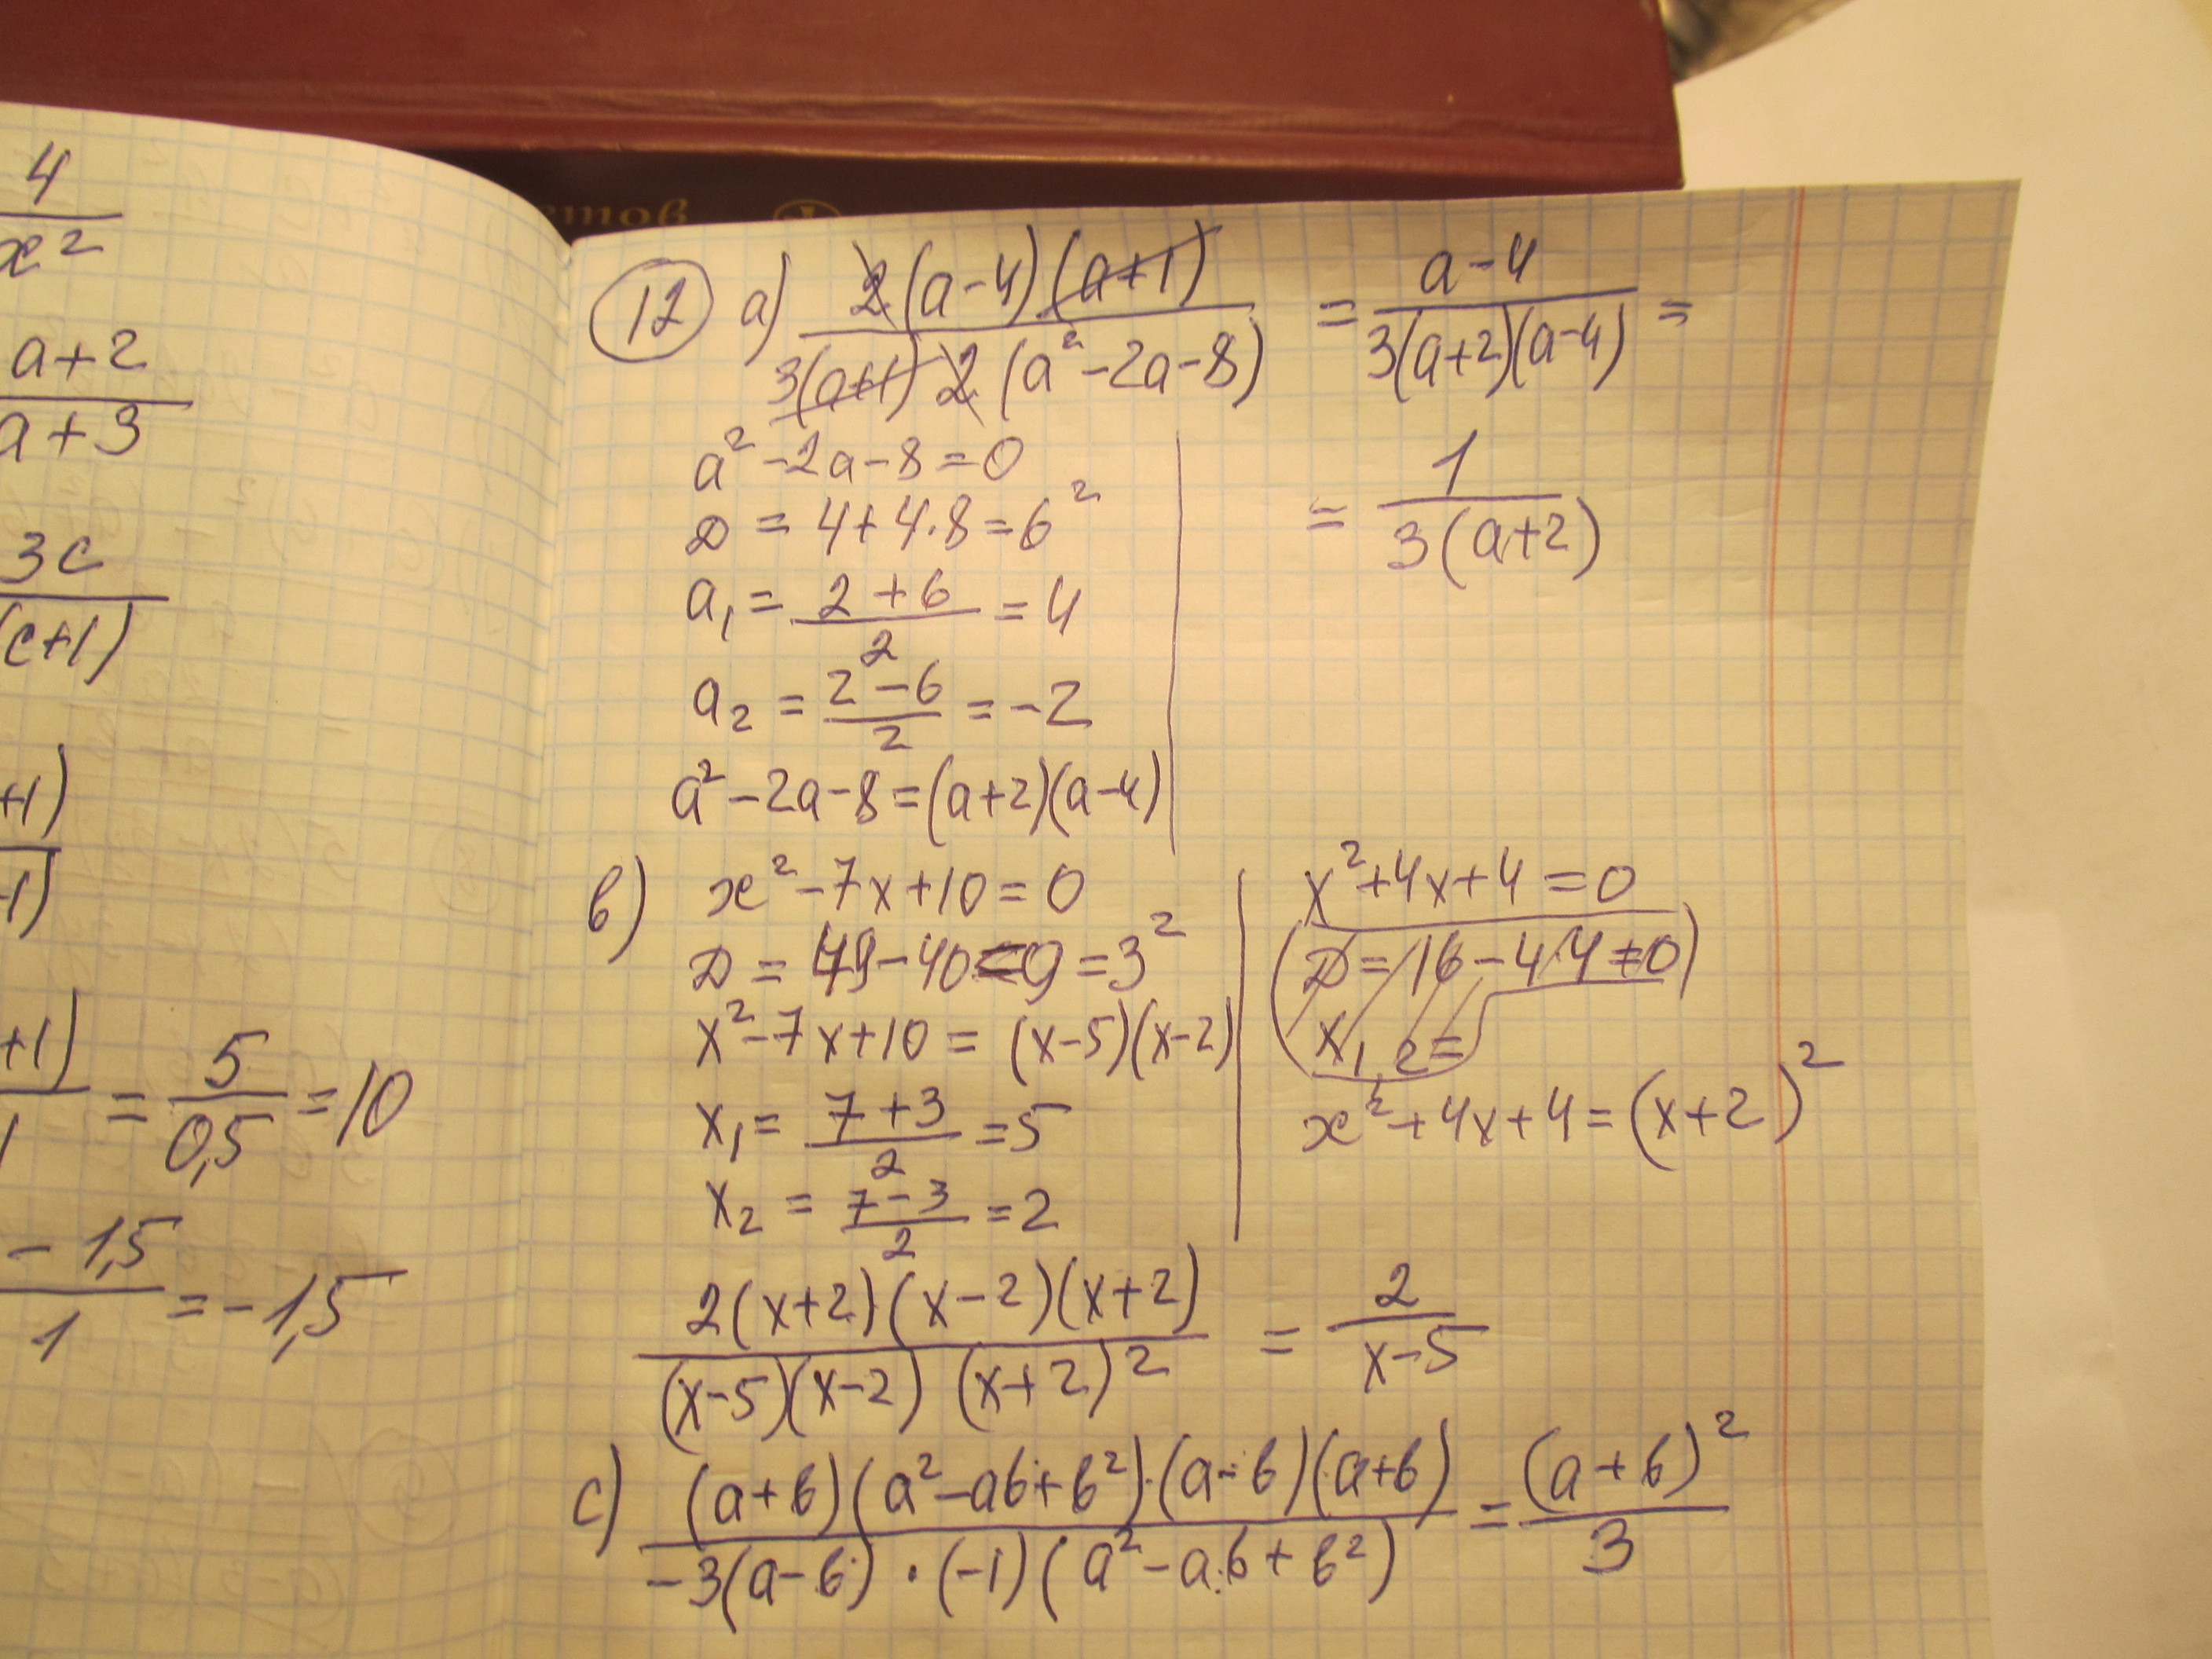 етов
4
x²
a+2
a+3
3c
(c+1)
+1)
-1)
+1)
1
= 5/0,5 = 10
-1,5/1 = -1,5
12 a) 2(a-4)(a+1) / 3(a+1) 2 (a²-2a-8) = a-4 / 3(a+2)(a-4) =
a²-2a-8=0
= 1 / 3(a+2)
D = 4+4·8=6²
a₁ = 2+6 / 2 = 4
a₂ = 2-6 / 2 = -2
a²-2a-8=(a+2)(a-4)
в) x²-7x+10=0
D = 49-40=9=3²
x²-7x+10 = (x-5)(x-2)
x₁ = 7+3 / 2 = 5
x₂ = 7-3 / 2 = 2
x²+4x+4=0
D = 16-4·4=0
x₁,₂=
x²+4x+4=(x+2)²
2(x+2)(x-2)(x+2) / (x-5)(x-2)(x+2)² = 2 / x-5
c) (a+b)(a²-ab+b²)·(a-b)(a+b) / -3(a-b)·(-1)(a²-ab+b²) = (a+b)² / 3